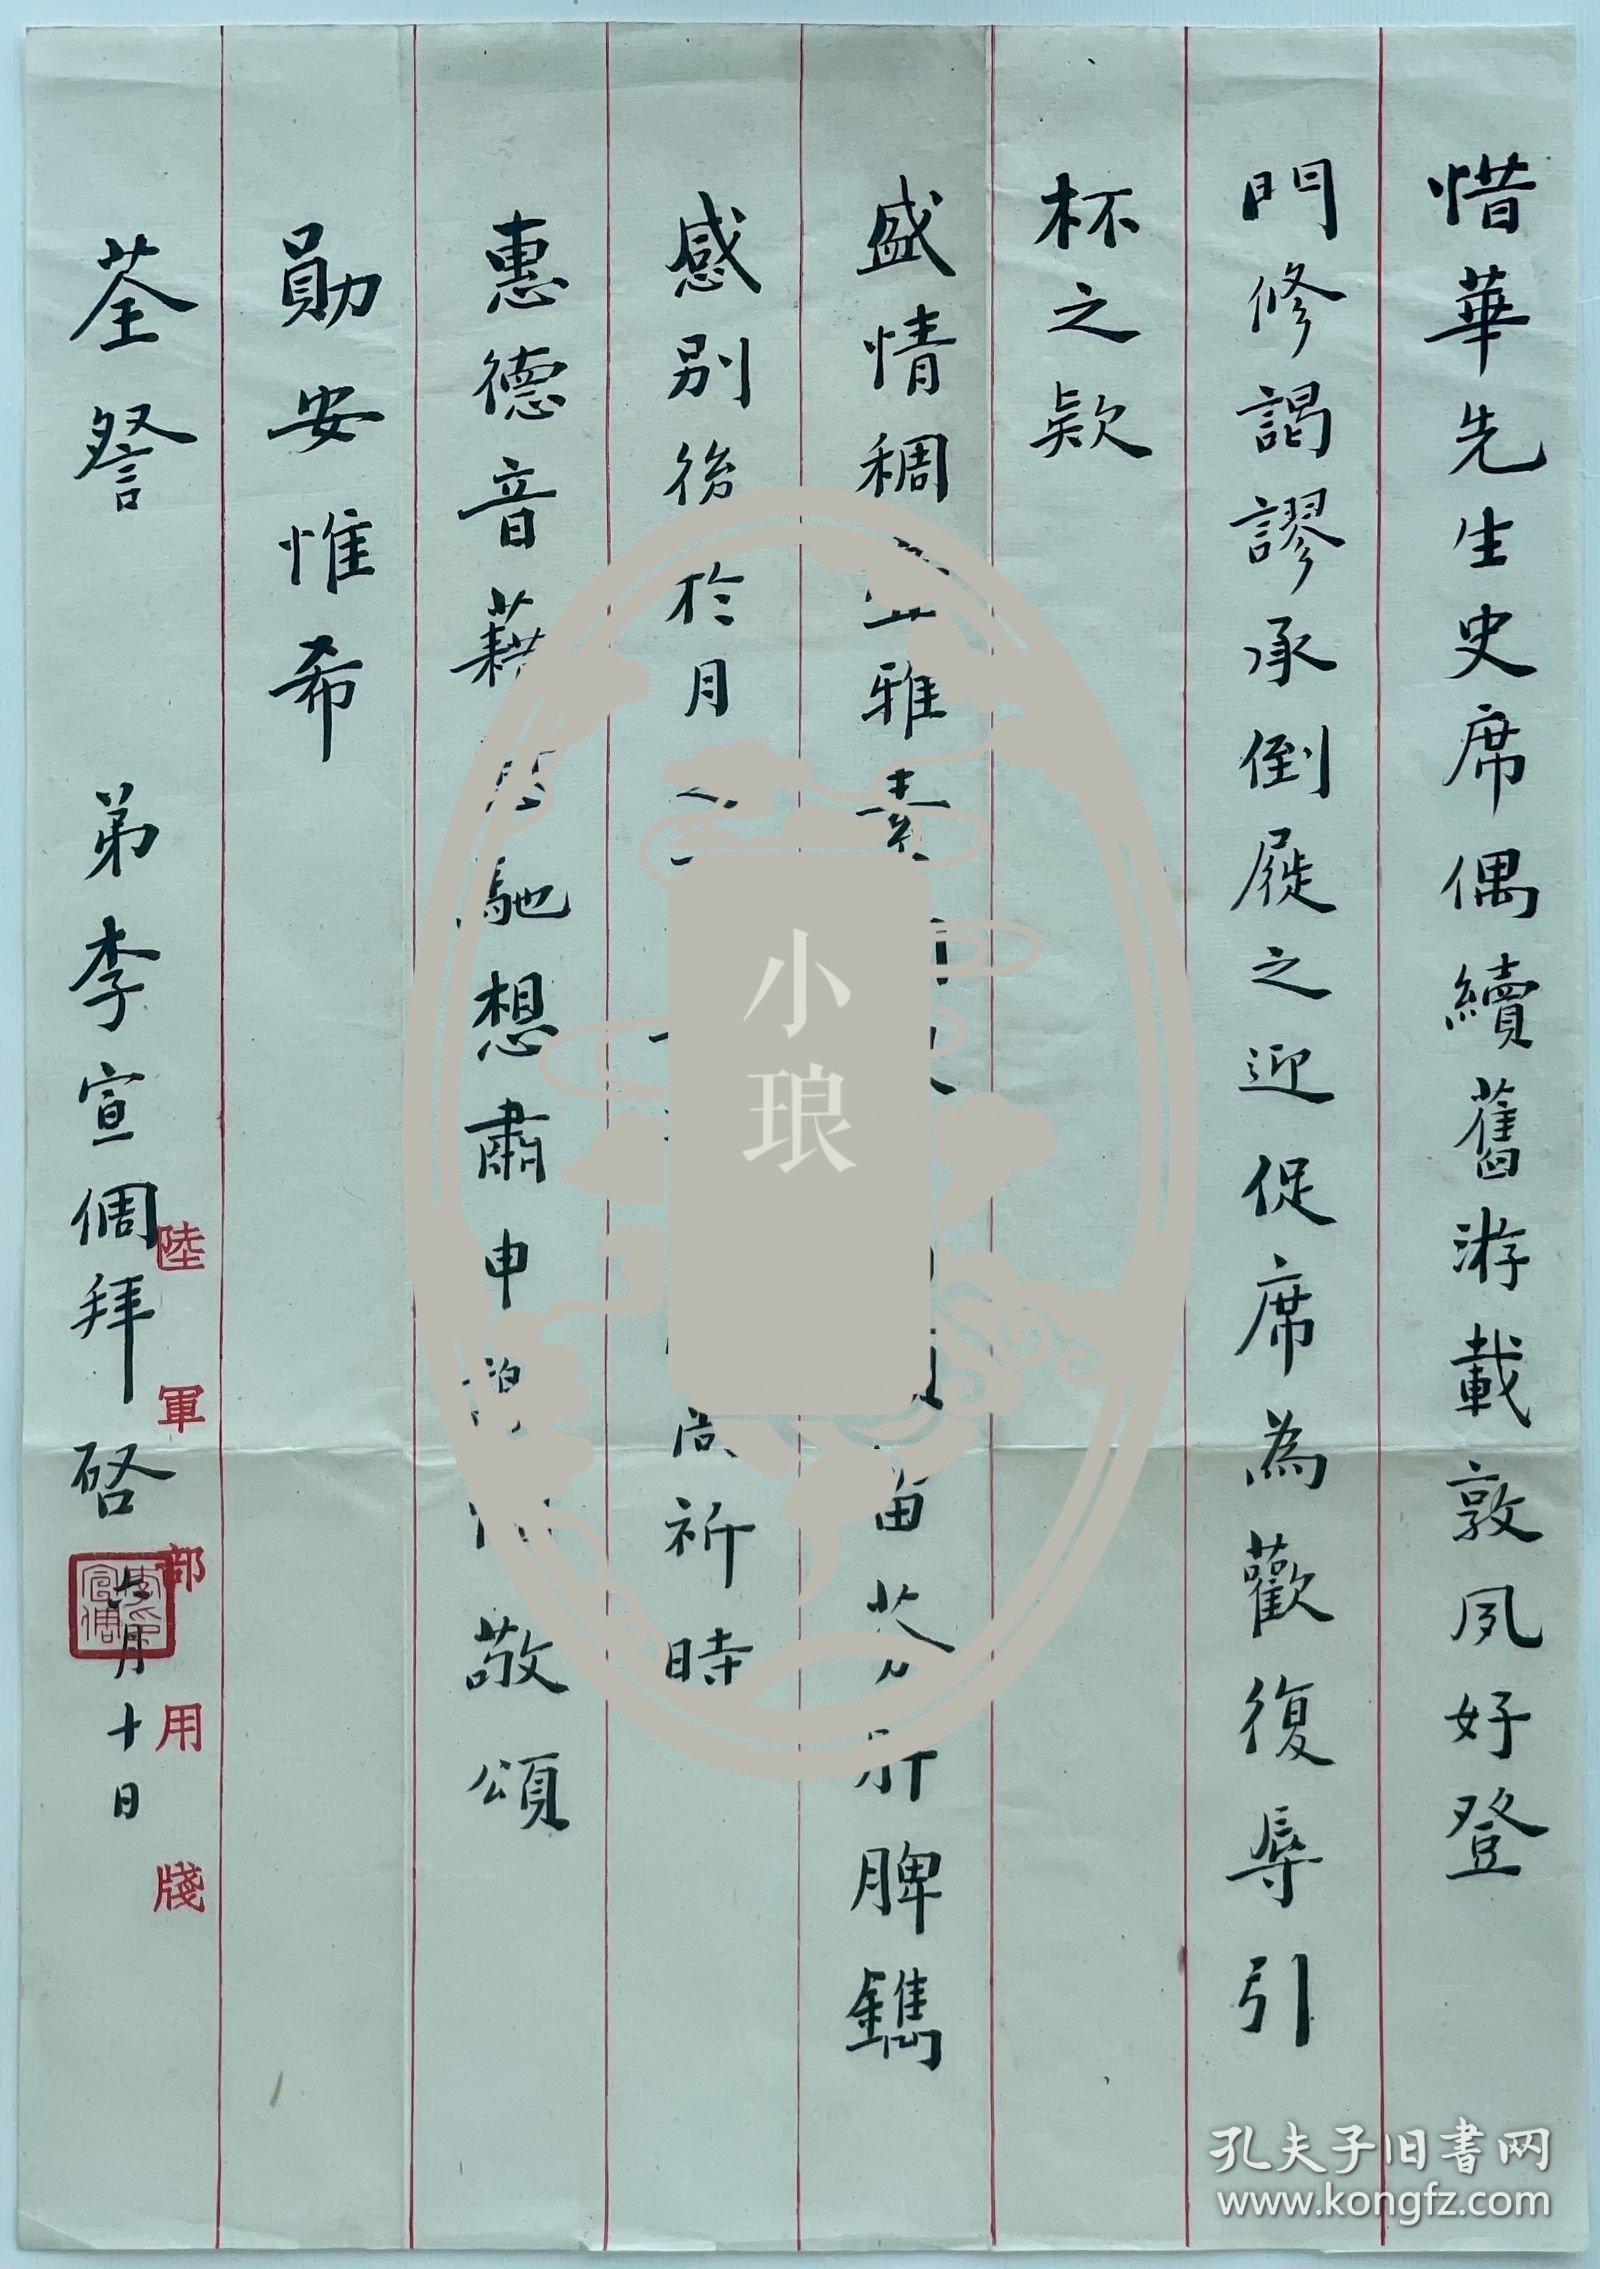 惜華先生史席偶續舊游載敦夙好登
門修謁謬承倒屣之迎促席為歡復辱引
杯之欵
盛情稠 雅素 留 芬肝脾鐫
感別後於月 尚祈時
惠德音藉 馳想肅申 敬頌
勛安惟希
荃詧
弟李宣倜拜啓
月十日
陸軍部用牋
小琅
孔夫子旧书网
www.kongfz.com